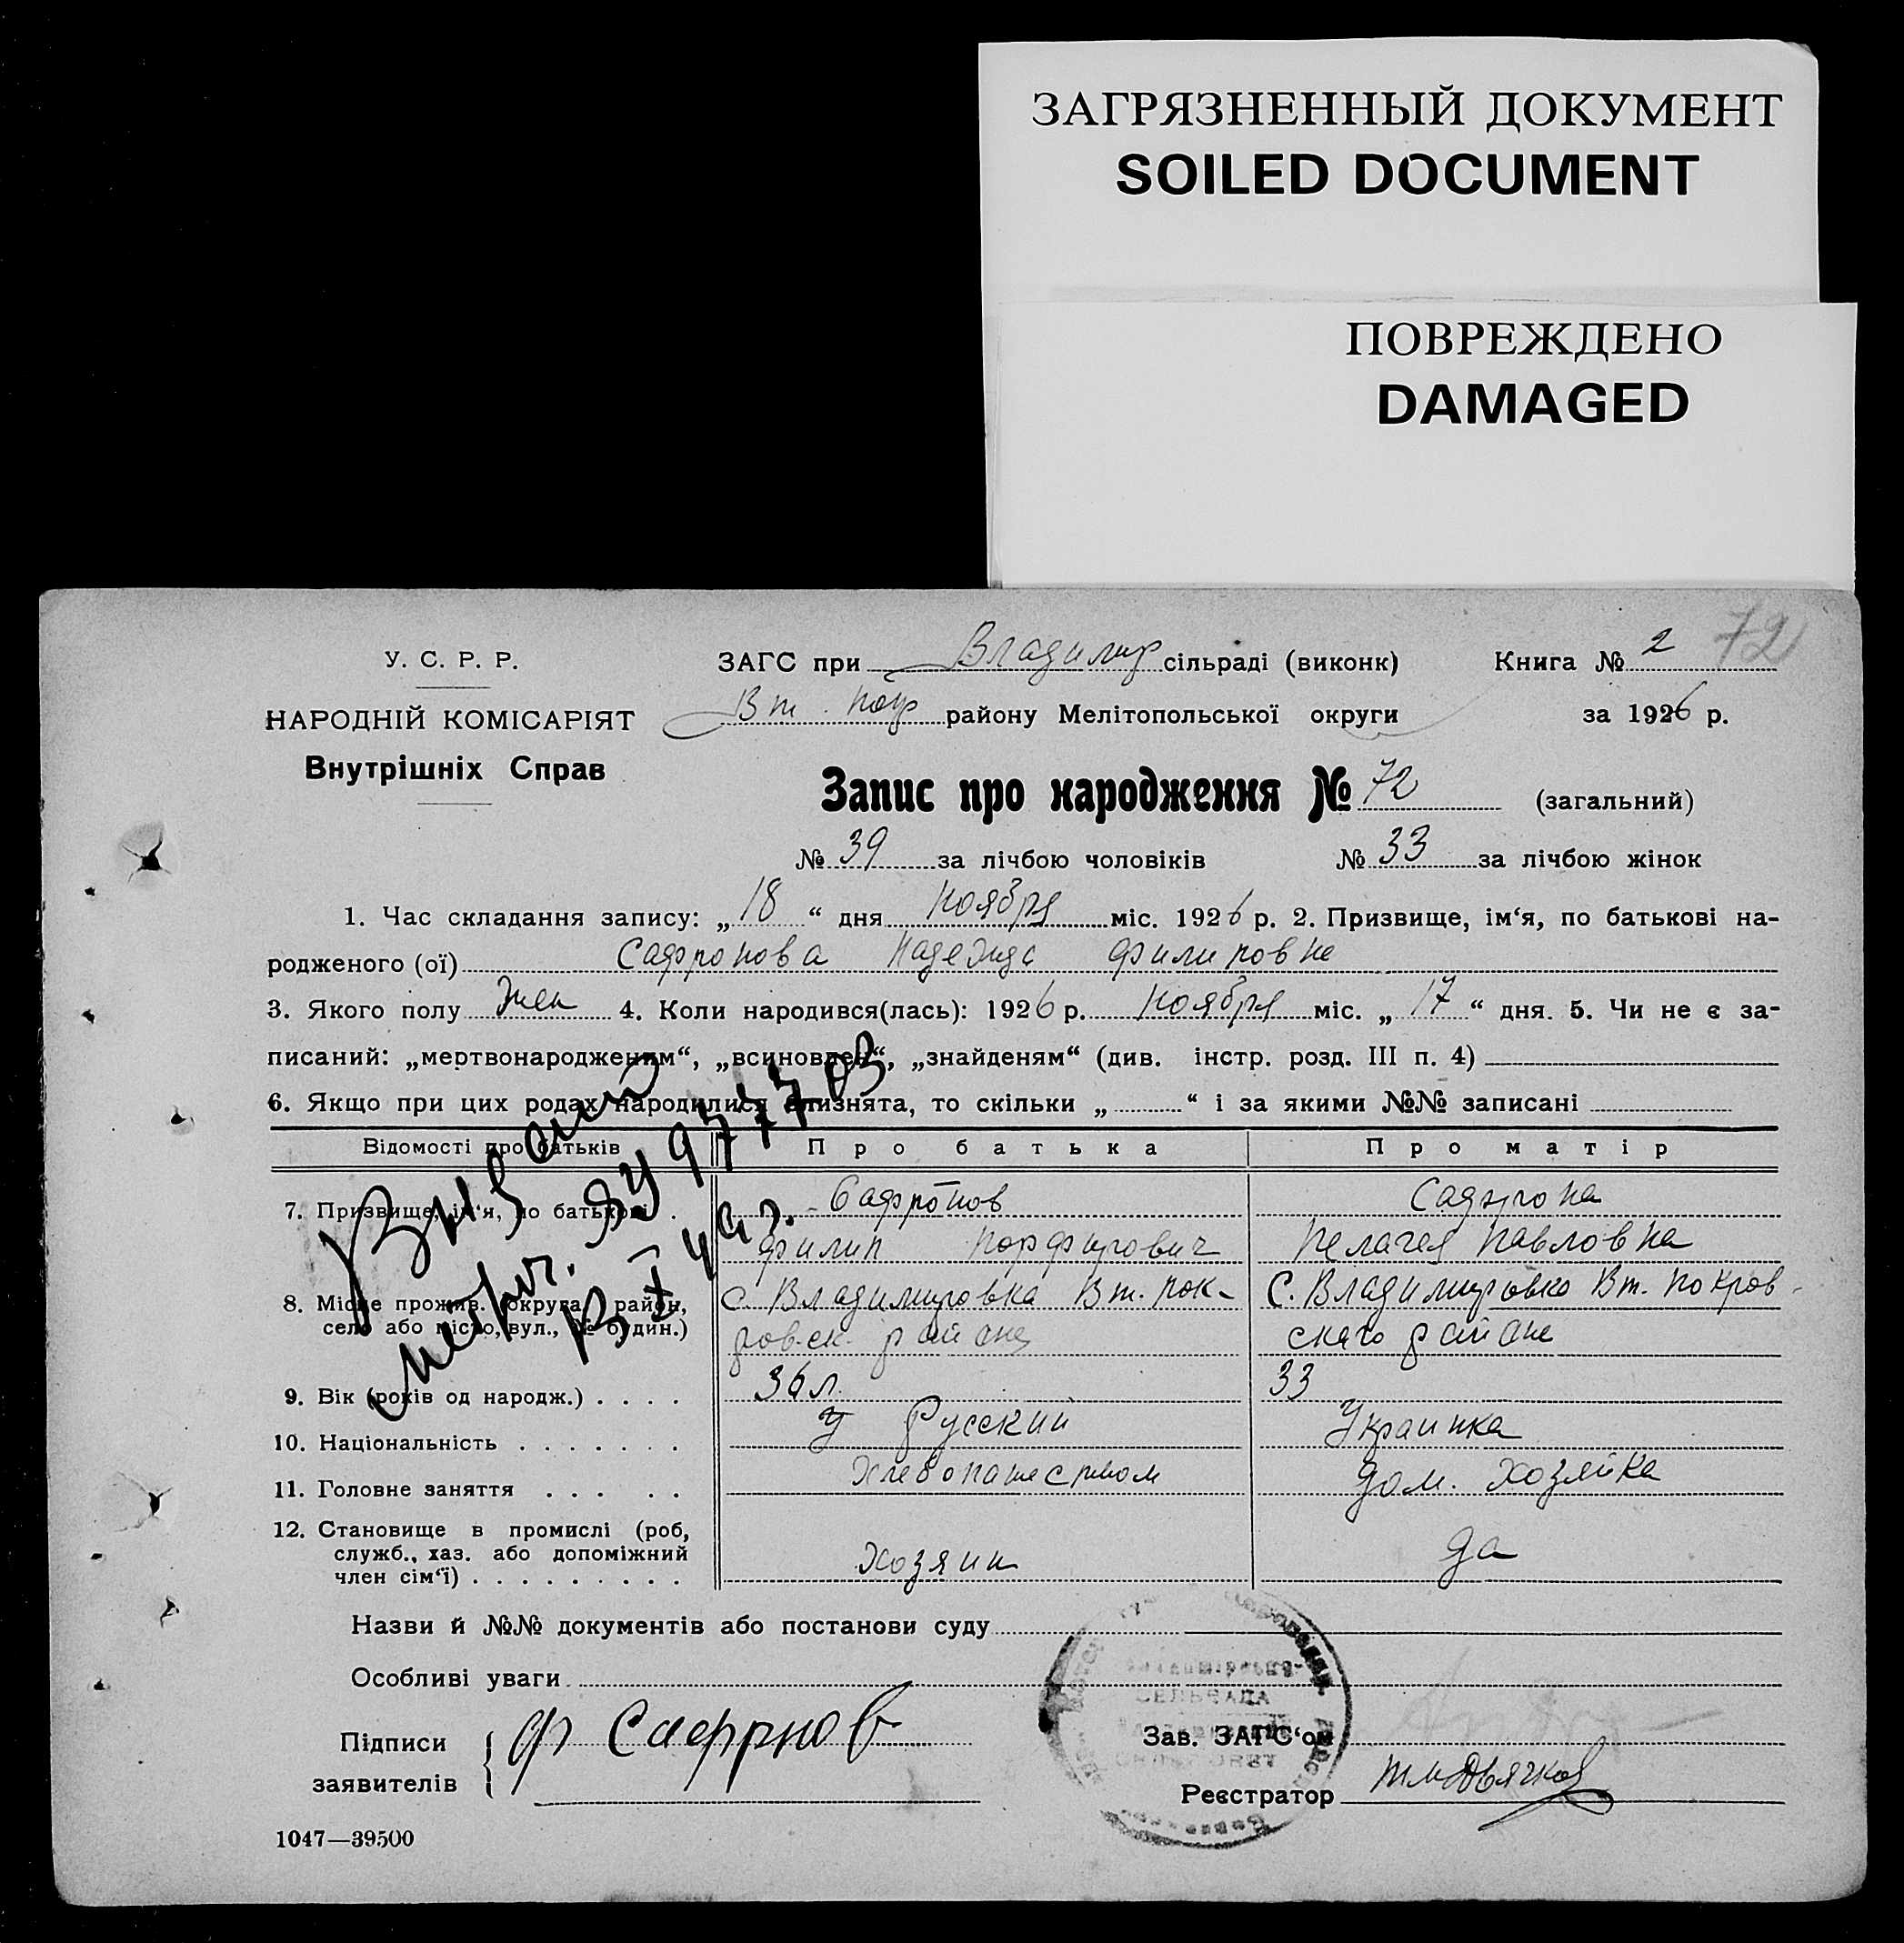 ЗАГРЯЗНЕННЫЙ ДОКУМЕНТ
SOILED DOCUMENT
ПОВРЕЖДЕНО
DAMAGED
72
У. С. Р. Р.
НАРОДНІЙ КОМІСАРІЯТ
Внутрішніх Справ
ЗАГС при Владимир сільраді (виконк) Книга № 2
Вт. Покр району Мелітопольської округи за 1926 р.
Запис про народження № 72 (загальний)
№ 39 за лічбою чоловіків № 33 за лічбою жінок
1. Час складання запису: „18“ дня Ноября міс. 1926 р. 2. Призвище, ім‘я, по батькові на-
родженого (ої) Сафронова Надежда Филиповне
3. Якого полу Жен 4. Коли народився(лась): 1926 р. Ноября міс. „17“ дня. 5. Чи не є за-
писаний: „мертвонародженим“, „всиновлен“, „знайденям“ (див. інстр. розд. III п. 4)
6. Якщо при цих родах народилися близнята, то скільки „ “ і за якими №№ записані
Відомості про батьків Про батька Про матір
7. Призвище, ім‘я, по батькові . Сафронов Сафрона
Филип Порфирович Пелагея Павловна
8. Місце прожив. (округа, район, с. Владимировка Вт. Пок- С. Владимировко Вт. Покров-
село або місто, вул., № будин.) ровск. района скаго района
9. Вік (років од народж.) . . . . 36 л. 33
10. Національність . . . . . . . У Русский Украинка
11. Головне заняття . . . . . Хлебопашеством дом. хозяйка
12. Становище в промислі (роб,
служб., хаз. або допоміжний Хозяин да
член сім‘ї) . . . . . . . . .
Выдано
метрич. ЯУ 977703
13 X 49 г.
Назви й №№ документів або постанови суду
Особливі уваги
СЕЛЬРАДА
Підписи Ф Сафрнов Зав. ЗАГС‘ом
заявителів Реєстратор
1047—39500